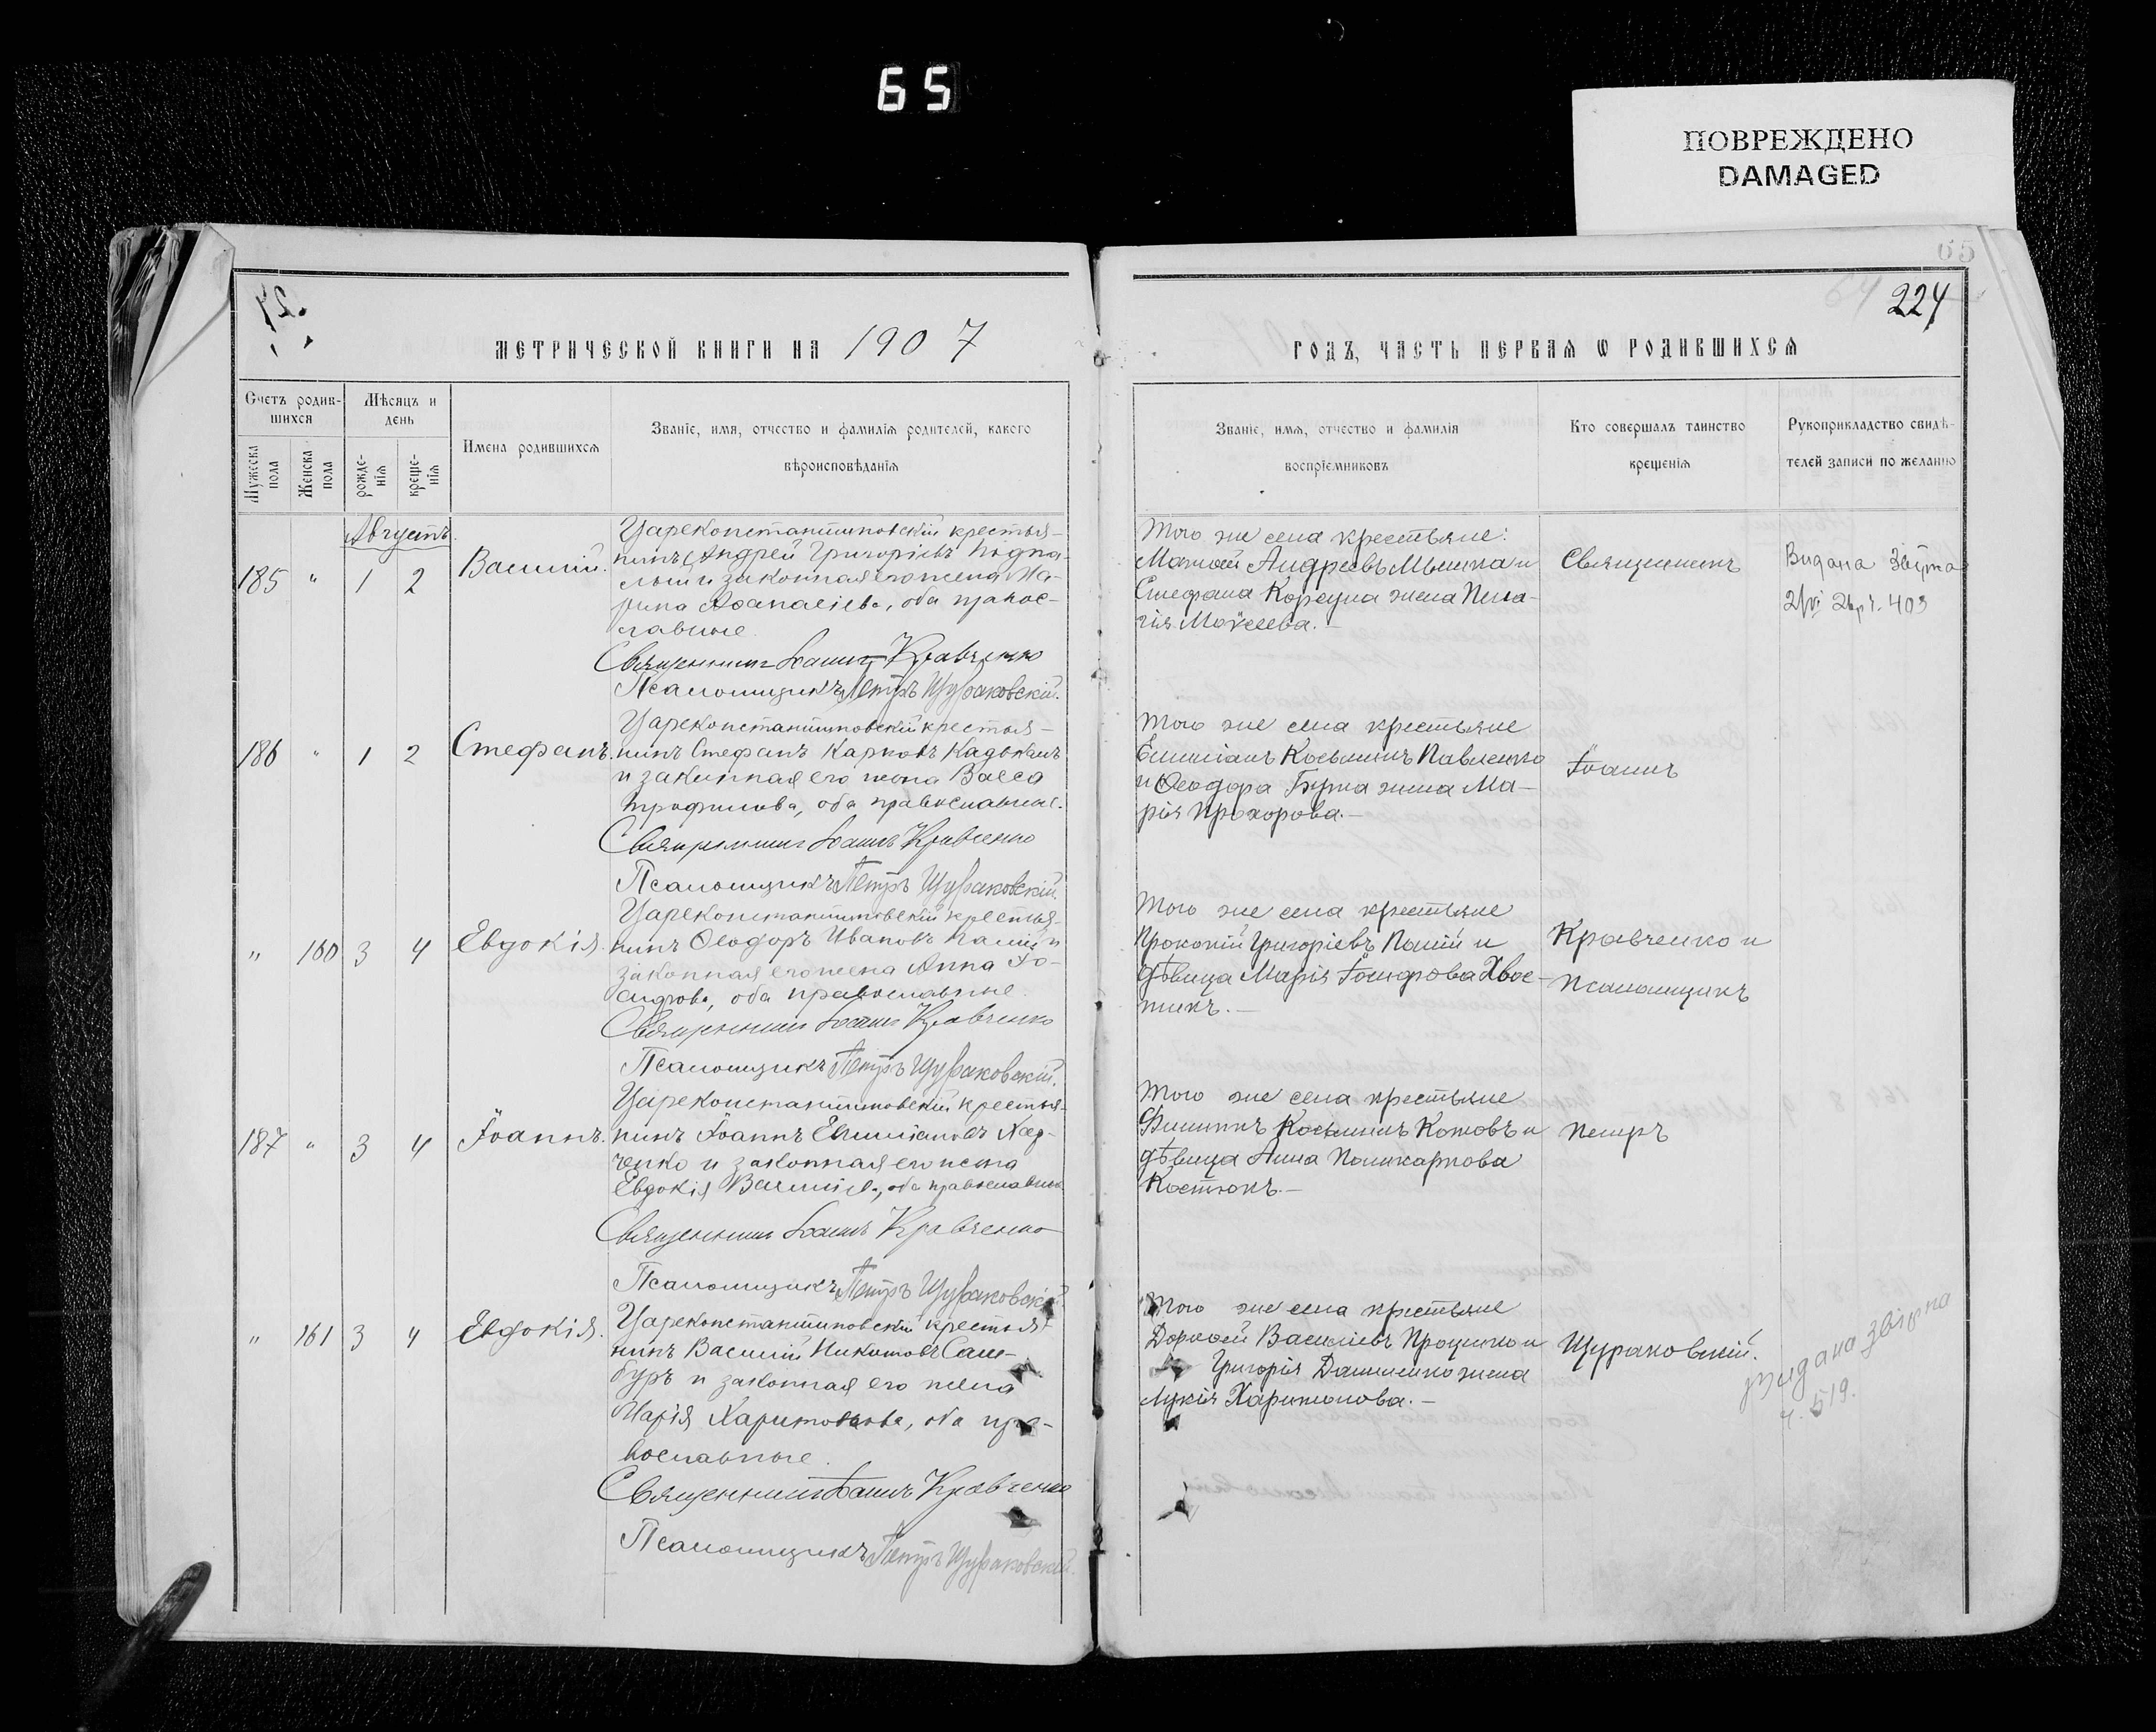 65
ПОВРЕЖДЕНО
DAMAGED
65
64 224
МЕТРИЧЕСКОЙ КНИГИ НА 1907
ГОДЪ, ЧАСТЬ ПЕРВАЯ Ѡ РОДИВШИХСЯ
Счетъ родив-
шихся
Мужеска пола
Женска пола
Мѣсяцъ и
день
рожде-
нія
креще-
нія
Имена родившихся
Званіе, имя, отчество и фамилія родителей, какого
вѣроисповѣданія
Званіе, имя, отчество и фамилія
воспріемниковъ
Кто совершалъ таинство
крещенія
Рукоприкладство свидѣ-
телей записи по желанію
Августъ.
185 " 1 2 Василій.
Цареконстантиновскій крестья-
нинъ Андрей Григоріевъ Подпа-
лый и законная его жена Ма-
рина Аѳанасіева, оба правос-
лавные.
Священникъ Іоаннъ Кравченко
Псаломщикъ Петръ Щураковскій.
Того же села крестьяне:
Матѳей Андреевъ Мышка и
Стефана Корсуна жена Пела-
гія Моѵсеева.—
Священникъ
Видана
403
186 " 1 2 Стефанъ.
Цареконстантиновскій крестья-
нинъ Стефанъ Карповъ
и законная его жена Васса
Трофимова, оба православные.
Священникъ Іоаннъ Кравченко
Псаломщикъ Петръ Щураковскій.
Того же села крестьяне
Емиліанъ Косьминъ Павленко
и Ѳеодора жена Ма-
рія Прохорова.—
Іоаннъ
" 160 3 4 Евдокія.
Цареконстантиновскій крестья-
нинъ Ѳеодоръ Ивановъ Палій и
законная его жена Анна Іо-
сифова, оба православные.
Священникъ Іоаннъ Кравченко
Псаломщикъ Петръ Щураковскій.
Того же села крестьяне
Прокопій Григоріевъ Палій и
дѣвица Марія Іосифова Хвос-
тикъ.—
Кравченко и
псаломщикъ
187 " 3 4 Іоаннъ.
Цареконстантиновскій крестья-
нинъ Іоаннъ Емиліановъ Хар-
ченко и законная его жена
Евдокія Василіева, оба православные.
Священникъ Іоаннъ Кравченко
Псаломщикъ Петръ Щураковскій.
Того же села крестьяне
Филиппъ Косьминъ Котовъ и
дѣвица Анна Поликарпова
Костюкъ.—
Петръ
" 161 3 4 Евдокія.
Цареконстантиновскій крестья-
нинъ Василій Никитовъ Сам-
буръ и законная его жена
Марія Харитонова, оба пра-
вославные.
Священникъ Іоаннъ Кравченко
Псаломщикъ Петръ Щураковскій.
Того же села крестьяне
Дороѳей Василіевъ Проценко и
Григорія Даниленко жена
Лукія Харитонова.—
Щураковскій.
Видана
ч. 519.